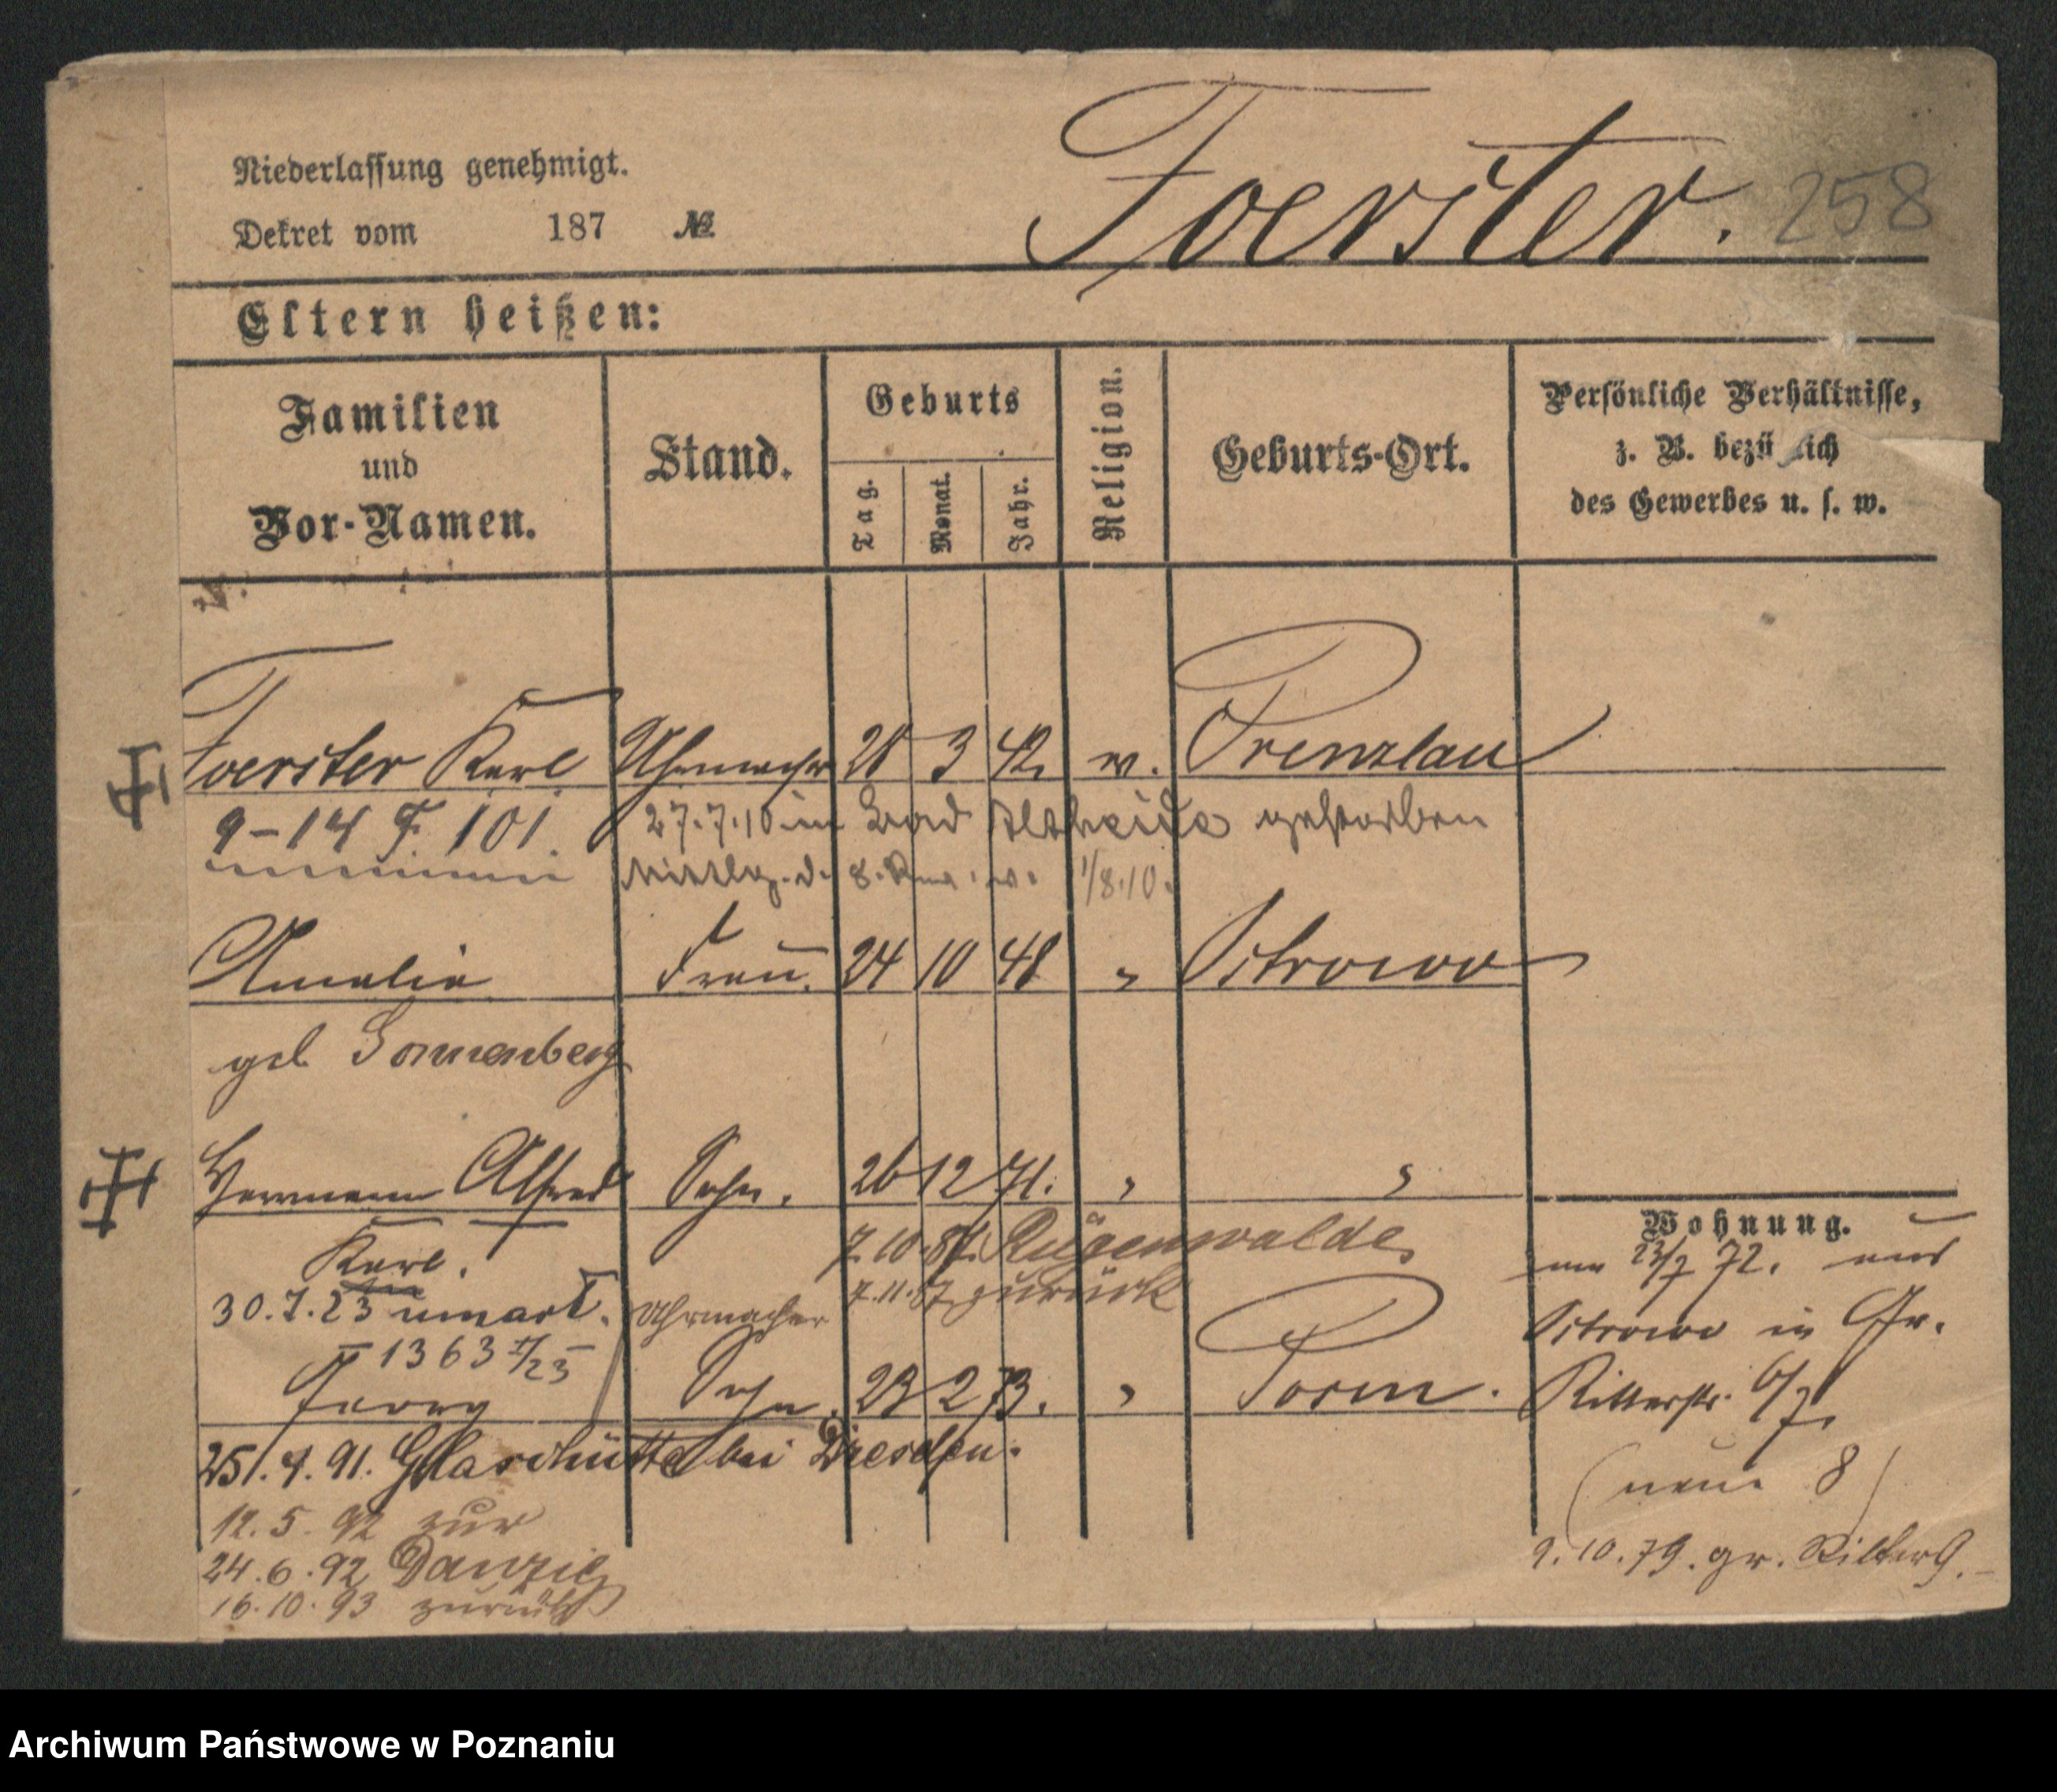 Niederlassung genehmigt.
Dekret vom 187 №
Foerster. 258
Eltern heißen:
Familien und Vor-Namen.
Stand.
Geburts
Tag.
Monat.
Jahr.
Religion.
Geburts-Ort.
Persönliche Verhältnisse,
z. B. bezü lich
des Gewerbes u. s. w.
Foerster Karl Uhrmacher 28 3 42. Prenzlau
9-14 F. 101. 27.7.10 in Bad Altheide gestorben
8. 1/8.10.
Amalie Frau. 24 10 48 " Ostrowo
geb Sonnenberg
Herrmann Alfred Sohn. 26 12 71. " "
Karl. 7.10.87. Rügenwalde
7.11.87 zurück
30.7.23 Uhrmacher
II 1363
Georg Sohn. 23 2 73. " Posen.
25.4.91. Glashütte bei Dresden.
12.5.92 zur
24.6.92 Danzig
16.10.93 zurück
Wohnung.
72. aus
Ostrowo in Gr.
Ritterstr. 6/7.
(neue 8)
9.10.79. gr. Ritter 9.
Archiwum Państwowe w Poznaniu